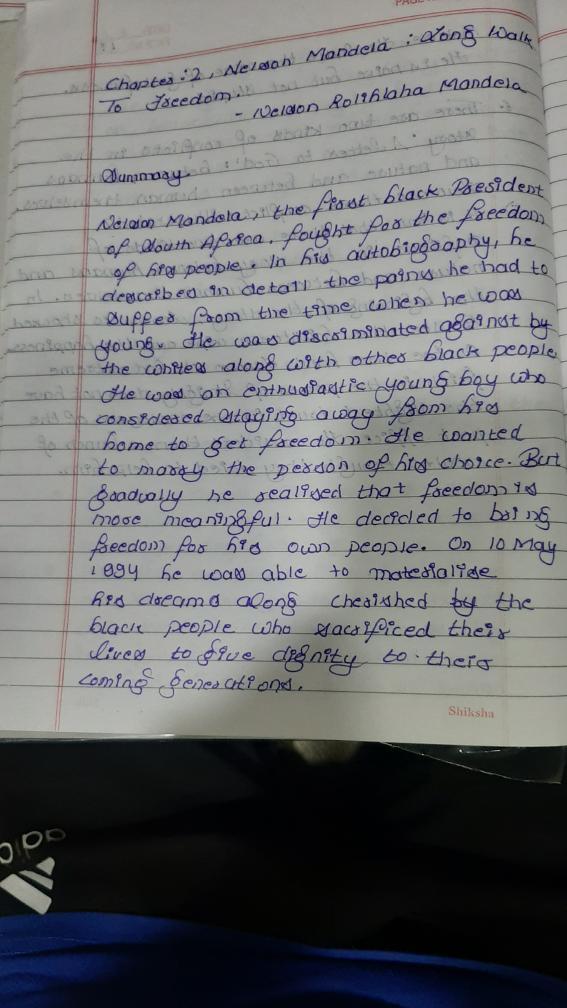 Chapter:2, Nelson Mandela : Long Walk
To Freedom.
- Nelson Rolihlaha Mandela
Summary
Nelson Mandela, the first black President
of South Africa, fought for the freedom
of his people. In his autobiography, he
described in detail the pains he had to
suffer from the time when he was
young. He was discriminated against by
the whites along with other black people
He was an enthusiastic young boy who
considered staying away from his
home to get freedom. He wanted
to marry the person of his choice. But
gradually he realised that freedom is
more meaningful. He decided to bring
freedom for his own people. On 10 May
1994 he was able to materialise
his dreams along cherished by the
black people who sacrificed their
lives to give dignity to their
coming generations.
Shiksha
adid